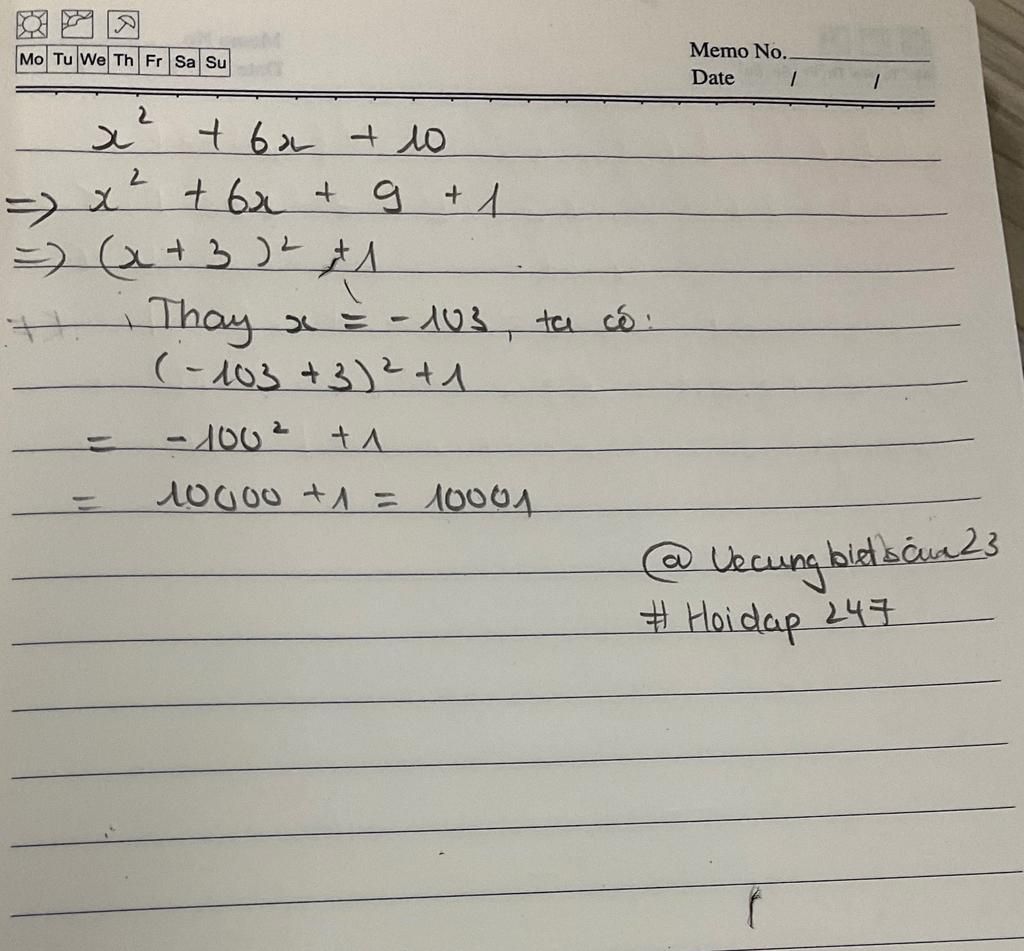 Mo Tu We Th Fr Sa Su
Memo No.
Date / /
x² + 6x + 10
=> x² + 6x + 9 + 1
=> (x + 3)² + 1
Thay x = -103, ta có:
(-103 + 3)² + 1
= -100² + 1
= 10000 + 1 = 10001
@
# Hoidap 247